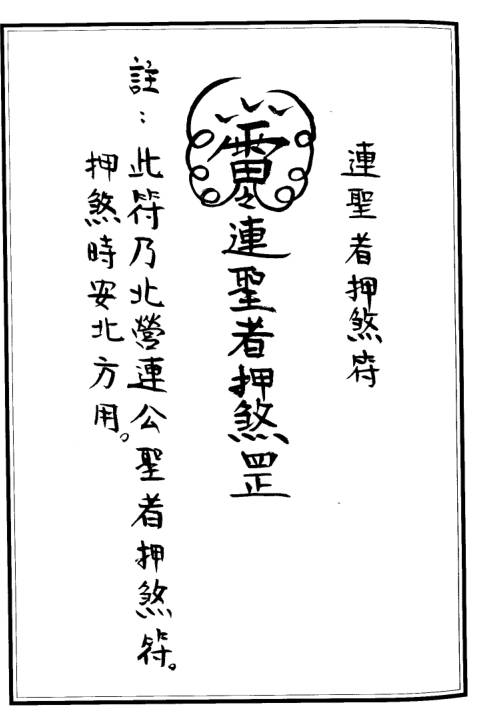 連聖者押煞符
連聖者押煞罡
註：此符乃北營連公聖者押煞符。
押煞時安北方用。